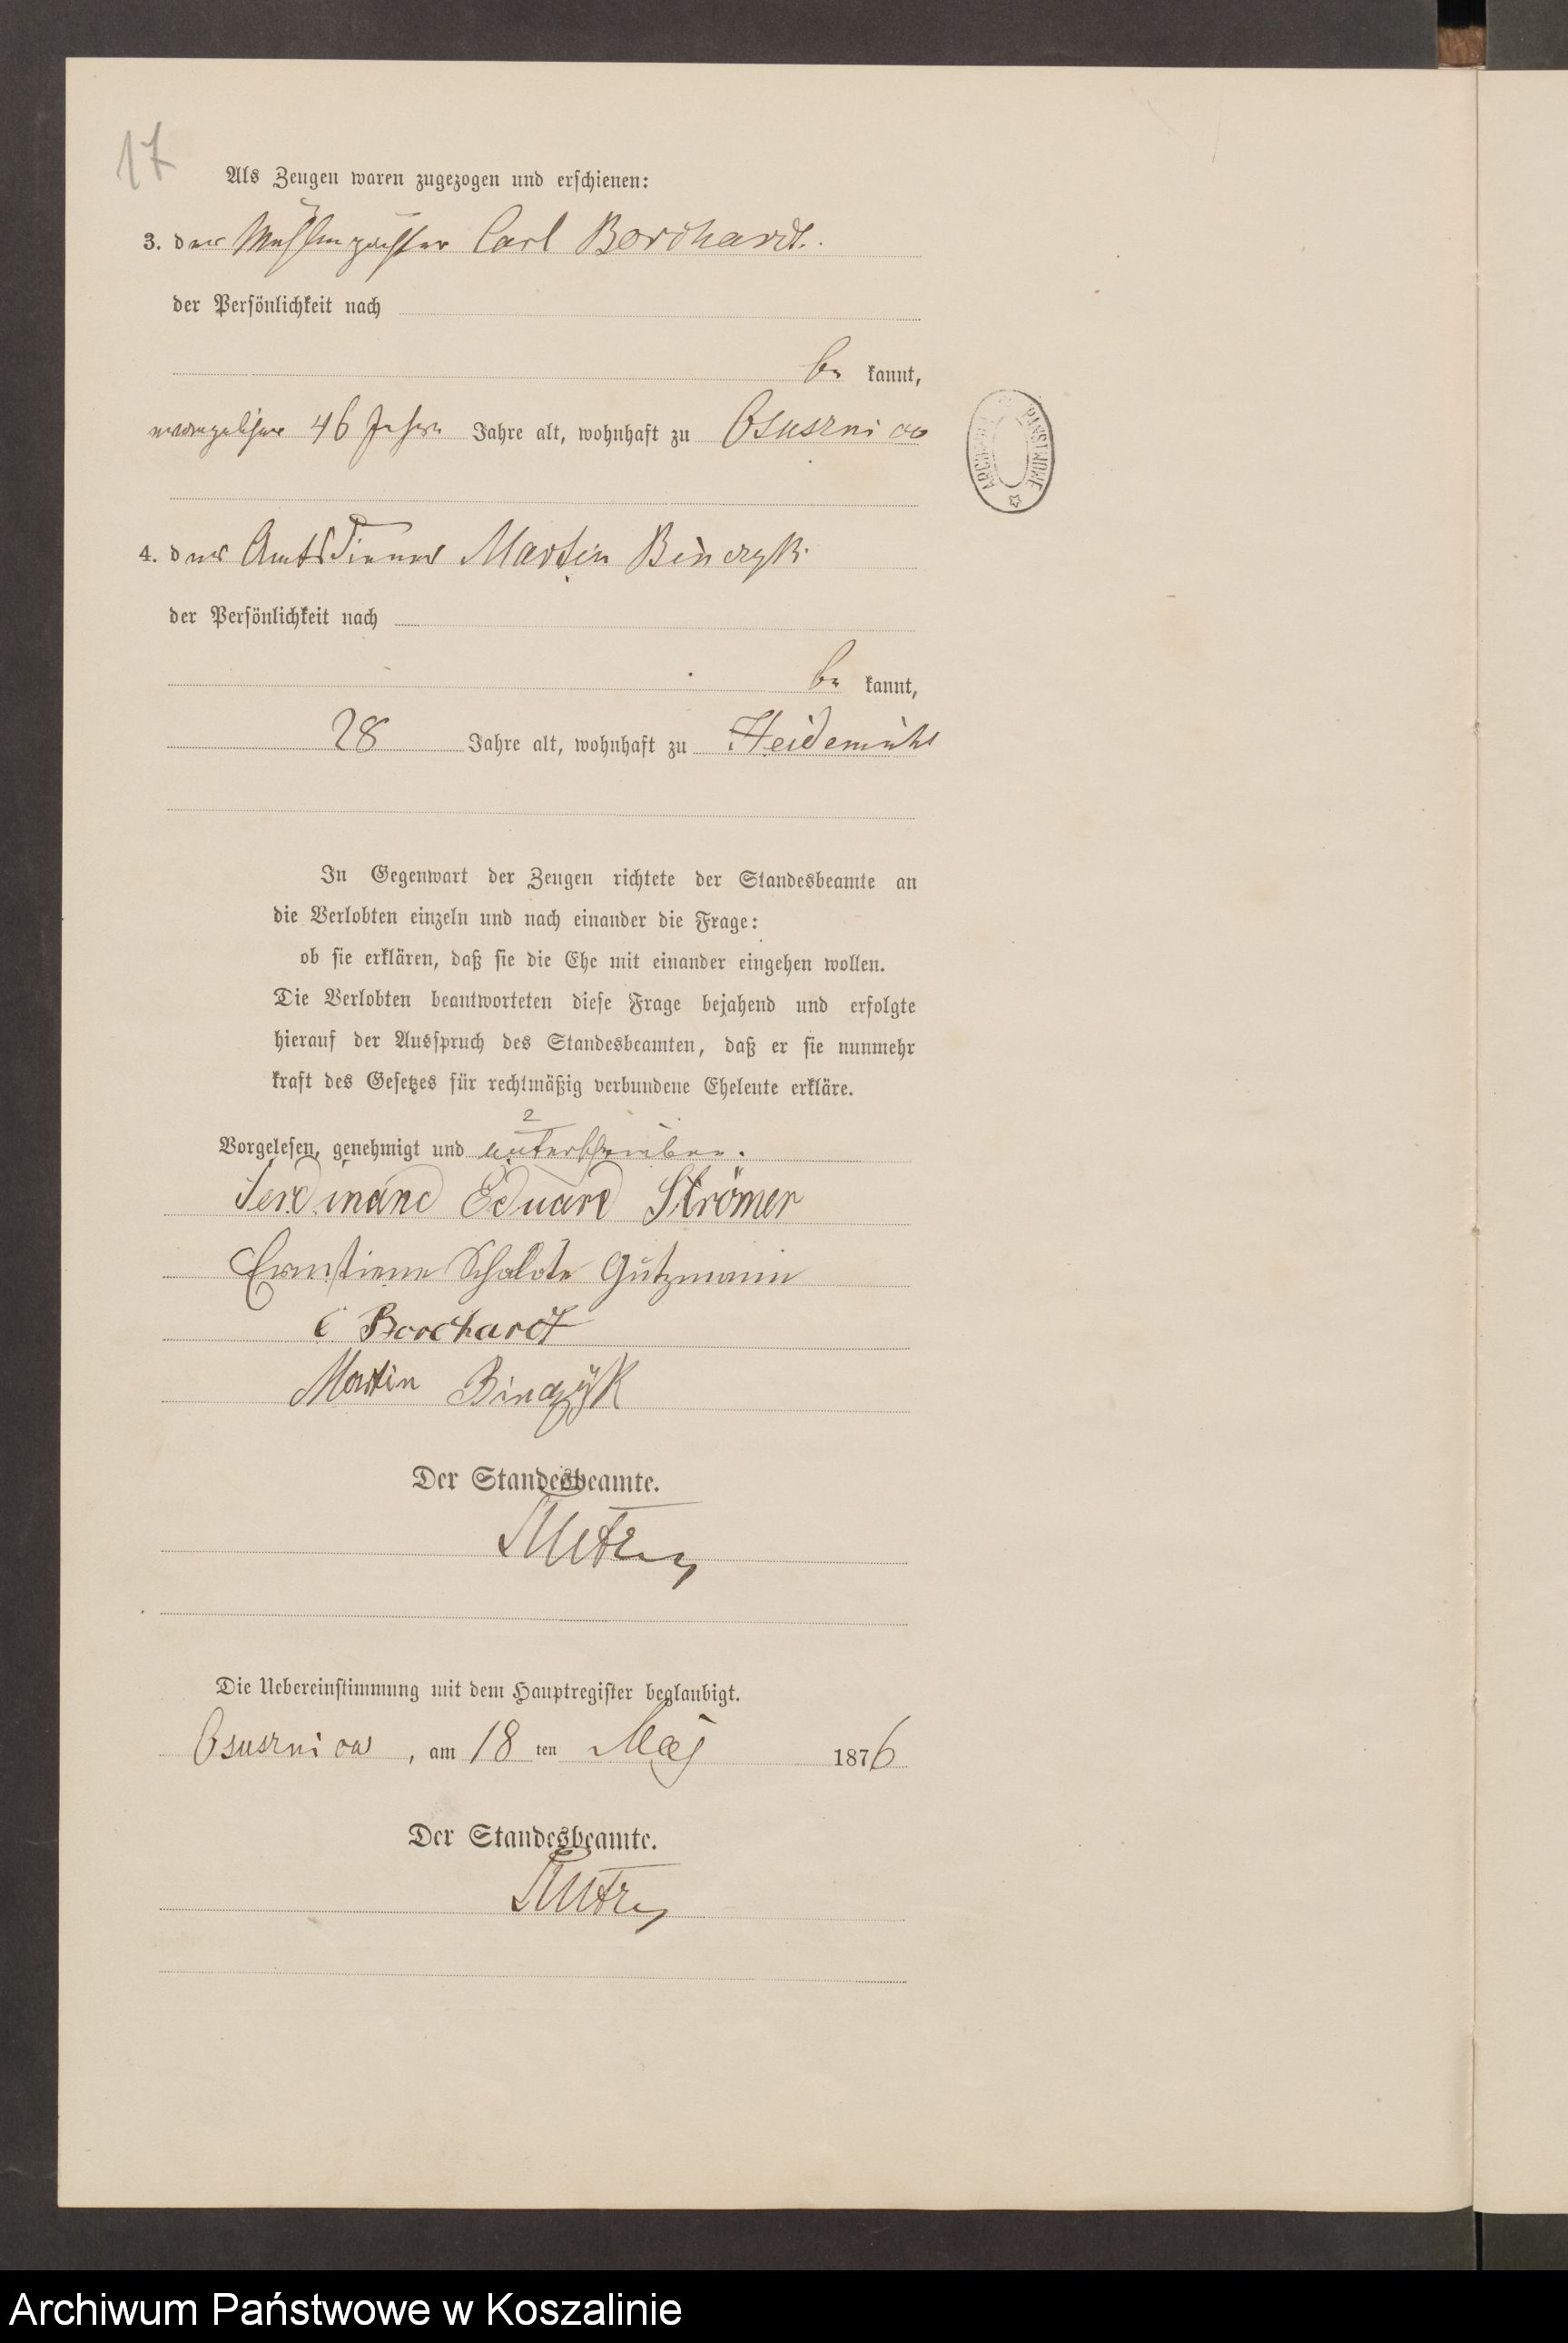 17
Als Zeugen waren zugezogen und erschienen:
3. der Mühlenpächter Carl Borchardt.
der Persönlichkeit nach
be kannt,
evangelischer 46 Jahre Jahre alt, wohnhaft zu Osusznica
ARCHIWUM PAŃSTWOWE
4. der Amtsdiener Martin Binczyk
der Persönlichkeit nach
be kannt,
28 Jahre alt, wohnhaft zu Heidemühl
In Gegenwart der Zeugen richtete der Standesbeamte an
die Verlobten einzeln und nach einander die Frage:
ob sie erklären, daß sie die Ehe mit einander eingehen wollen.
Die Verlobten beantworteten diese Frage bejahend und erfolgte
hierauf der Ausspruch des Standesbeamten, daß er sie nunmehr
kraft des Gesetzes für rechtmäßig verbundene Eheleute erkläre.
Vorgelesen, genehmigt und unterschrieben.
Ferdinand Eduard Strömer
Ernstiene Schalote Gutzmann
C Borchardt
Martin Binczyk
Der Standesbeamte.
Die Uebereinstimmung mit dem Hauptregister beglaubigt.
Osusznica, am 18 ten Maj 1876
Der Standesbeamte.
Archiwum Państwowe w Koszalinie